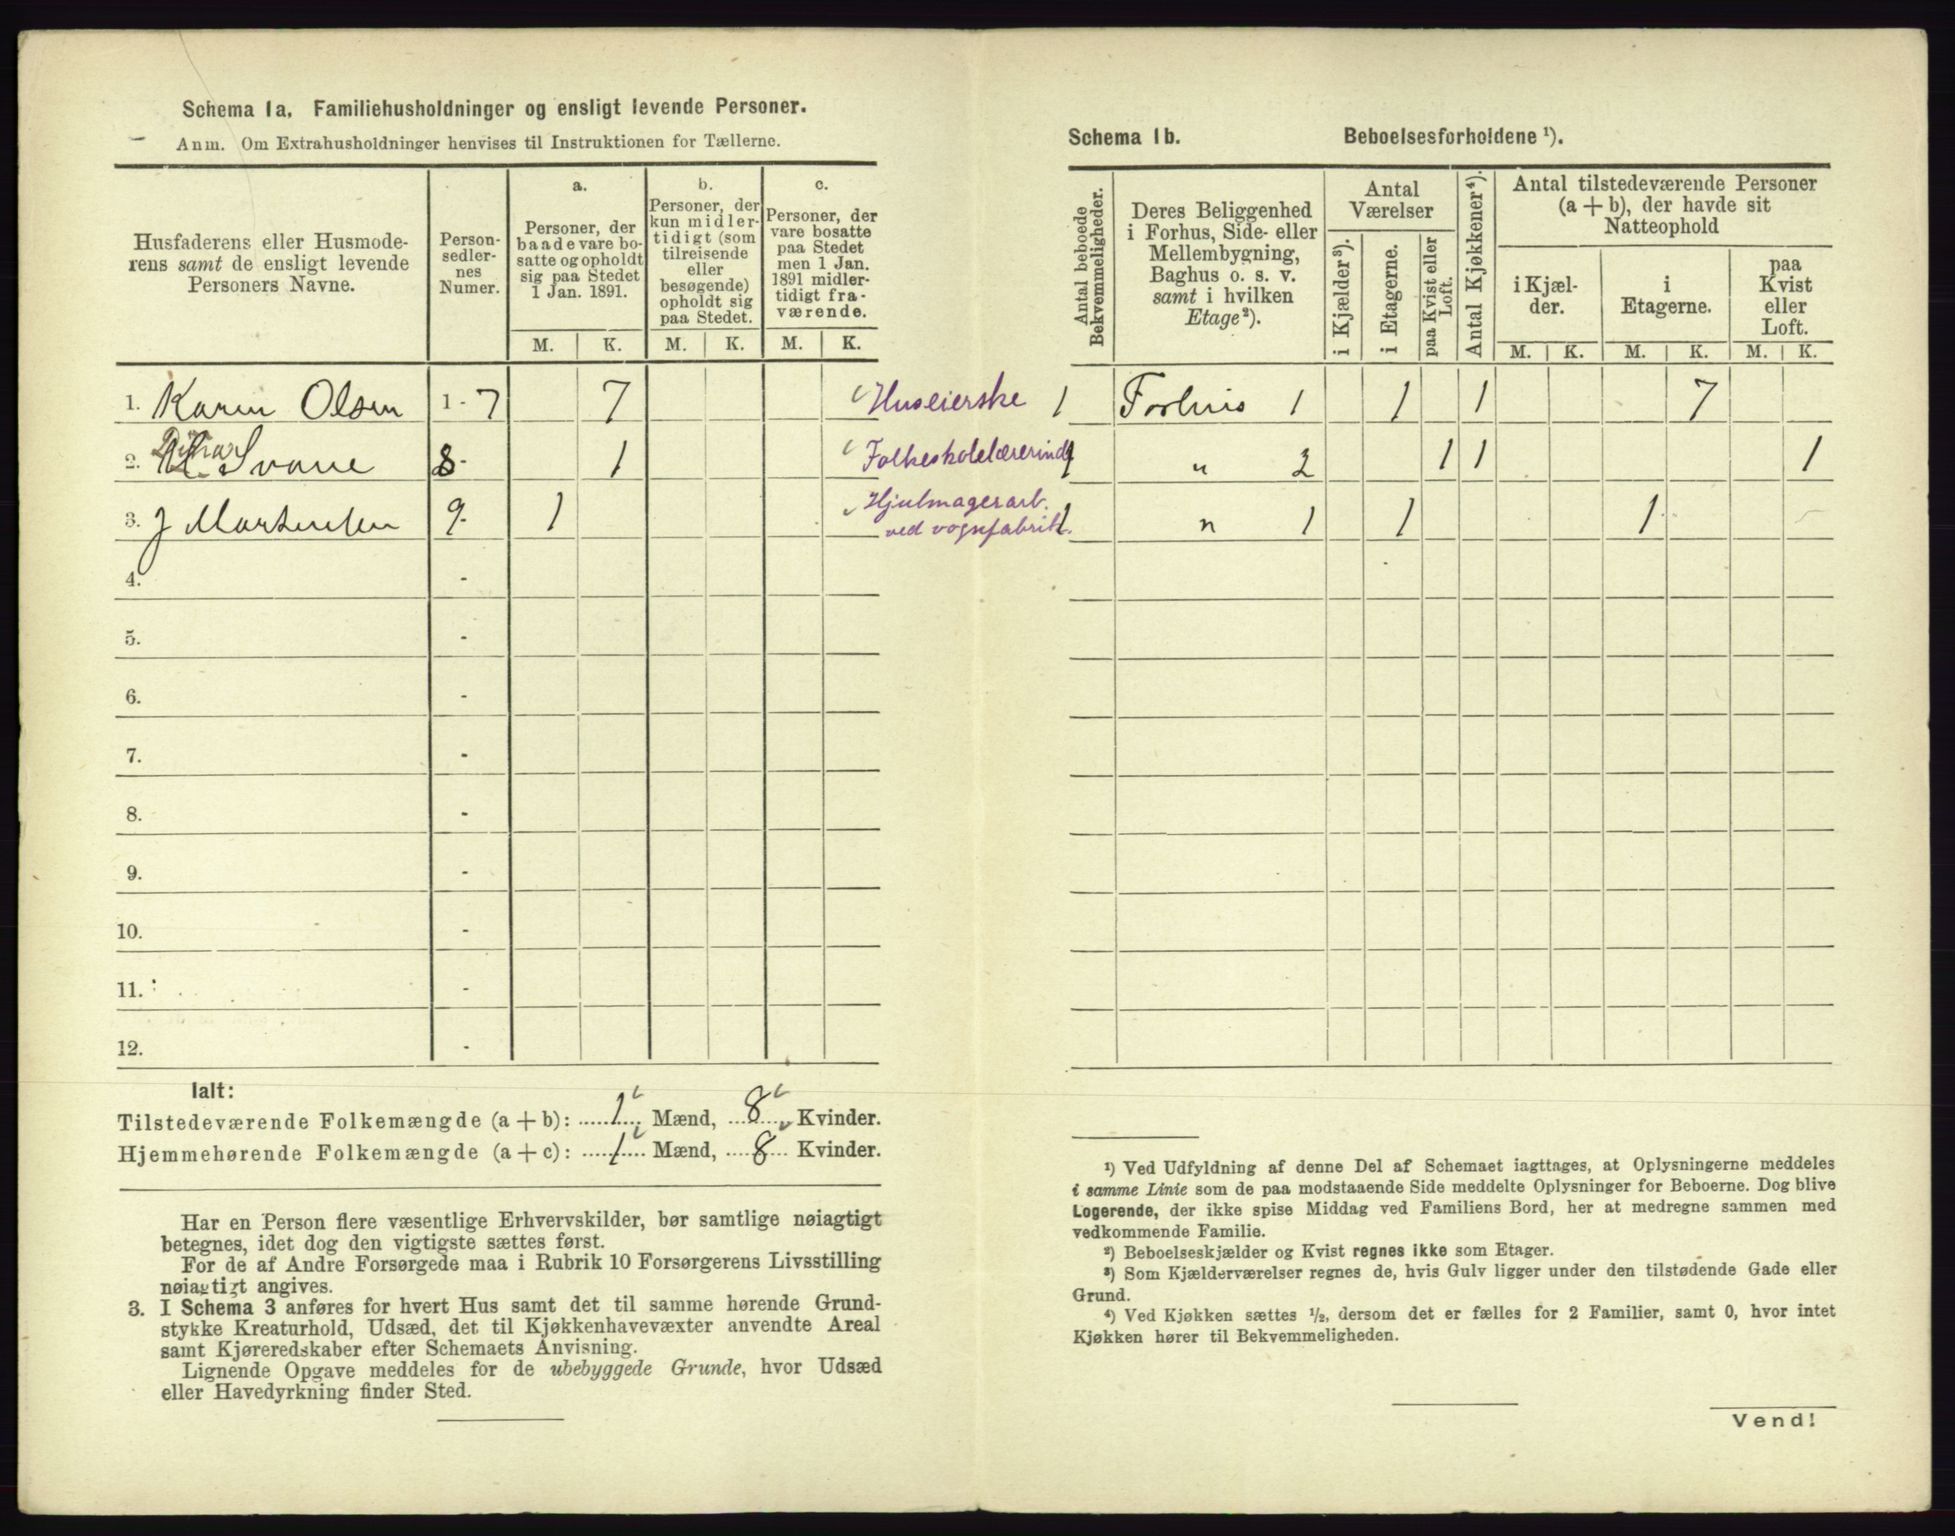 Schema 1a. Familiehusholdninger og ensligt levende Personer.
Anm. Om Extrahusholdninger henvises til Instruktionen for Tællerne.
Husfaderens eller Husmode-
rens samt de ensligt levende
Personers Navne.
Person-
sedler-
nes
Numer.
a.
Personer, der
baade vare bo-
satte og opholdt
sig paa Stedet
1 Jan. 1891.
b.
Personer, der
kun midler-
tidigt (som
tilreisende
eller
besøgende)
opholdt sig
paa Stedet.
c.
Personer, der
vare bosatte
paa Stedet
men 1 Jan.
1891 midler-
tidigt fra-
værende.
M. K. M. K. M. K.
1. Karen Olsen 1 - 7 7 Huseierske
2. Svane 8 - 1 Folkeskolelærerinde
3. J Martensen 9 - 1 Hjulmagerarb.
ved vognfabrik.
4. -
5. -
6. -
7. -
8. -
9. -
10. -
11. -
12. -
Ialt:
Tilstedeværende Folkemængde (a + b): 1 Mænd, 8 Kvinder.
Hjemmehørende Folkemængde (a + c): 1 Mænd, 8 Kvinder.
Har en Person flere væsentlige Erhvervskilder, bør samtlige nøiagtigt
betegnes, idet dog den vigtigste sættes først.
For de af Andre Forsørgede maa i Rubrik 10 Forsørgerens Livsstilling
nøiagtigt angives.
3. I Schema 3 anføres for hvert Hus samt det til samme hørende Grund-
stykke Kreaturhold, Udsæd, det til Kjøkkenhavevæxter anvendte Areal
samt Kjøreredskaber efter Schemaets Anvisning.
Lignende Opgave meddeles for de ubebyggede Grunde, hvor Udsæd
eller Havedyrkning finder Sted.
Schema 1b. Beboelsesforholdene ¹).
Antal beboede
Bekvemmeligheder.
Deres Beliggenhed
i Forhus, Side- eller
Mellembygning,
Baghus o. s. v.
samt i hvilken
Etage²).
Antal
Værelser
i Kjælder³).
i Etagerne.
paa Kvist eller
Loft.
Antal Kjøkkener⁴).
Antal tilstedeværende Personer
(a + b), der havde sit
Natteophold
i Kjæl-
der.
i
Etagerne.
paa
Kvist
eller
Loft.
M. K. M. K. M. K.
1 Forhus 1 1 1 7
1 " 2 1 1 1
1 " 1 1 1
¹) Ved Udfyldning af denne Del af Schemaet iagttages, at Oplysningerne meddeles
i samme Linie som de paa modstaaende Side meddelte Oplysninger for Beboerne. Dog blive
Logerende, der ikke spise Middag ved Familiens Bord, her at medregne sammen med
vedkommende Familie.
²) Beboelseskjælder og Kvist regnes ikke som Etager.
³) Som Kjælderværelser regnes de, hvis Gulv ligger under den tilstødende Gade eller
Grund.
⁴) Ved Kjøkken sættes ½, dersom det er fælles for 2 Familier, samt 0, hvor intet
Kjøkken hører til Bekvemmeligheden.
Vend!